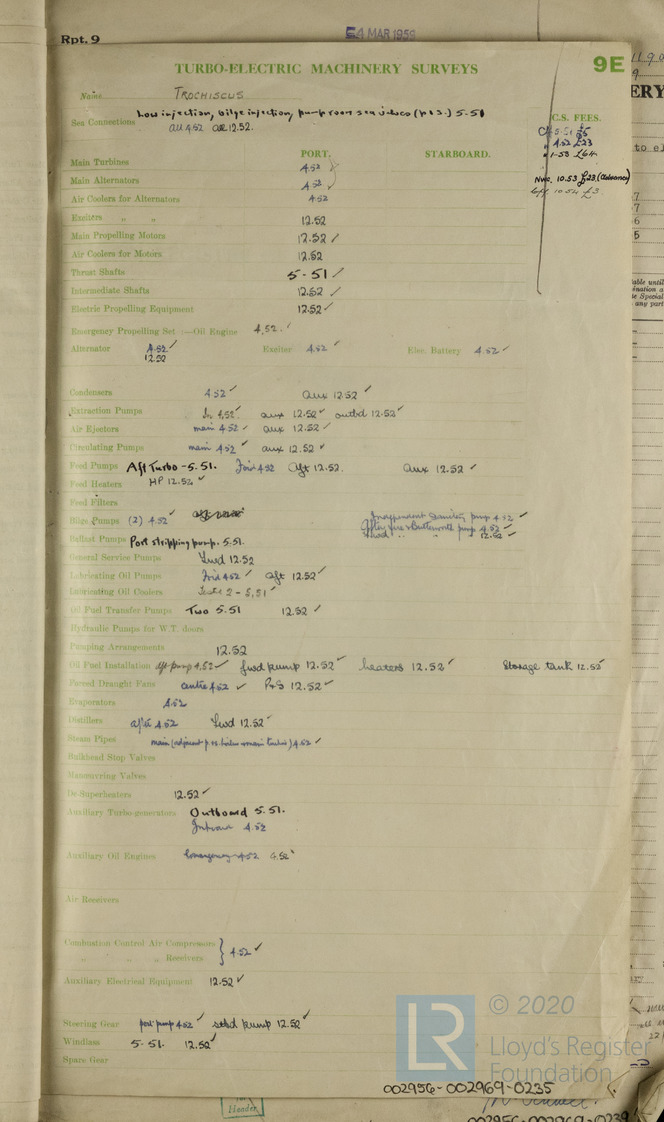 Rpt. 9
4 MAR 1959
TURBO-ELECTRIC MACHINERY SURVEYS
9E
Name TROCHISCUS
Low injection, bilge injection, pump room sea valves (p&s.) 5-51
Sea Connections all 4.52 all 12.52.
C.S. FEES.
5.51 £5
4.52 £23
1-53 £64
10.53 £23 (Advance)
10.52 £3
PORT. STARBOARD.
Main Turbines 4.52 ✓
Main Alternators 4.52 ✓
Air Coolers for Alternators 4.52
Exciters „ „ 12.52
Main Propelling Motors 12.52 ✓
Air Coolers for Motors 12.52
Thrust Shafts 5-51 ✓
Intermediate Shafts 12.52 ✓
Electric Propelling Equipment 12.52 ✓
Emergency Propelling Set :—Oil Engine 4.52. ✓
Alternator 4.52 ✓ Exciter 4.52 ✓ Elec. Battery 4.52 ✓
12.52
Condensers 4.52 ✓ aux 12.52 ✓
Extraction Pumps 4.52 ✓ aux 12.52 ✓ outbd 12.52 ✓
Air Ejectors main 4.52 ✓ aux 12.52 ✓
Circulating Pumps main 4.52 ✓ aux 12.52 ✓
Feed Pumps Aft Turbo - 5.51. Forwd 4.52 aft 12.52. aux 12.52 ✓
Feed Heaters HP 12.52 ✓
Feed Filters
Bilge Pumps (2) 4.52 ✓ Independent Sanitary pump 4.52 ✓
After fire & Butterworth pump 4.52 ✓
Fwd „ „ 12.52 ✓
Ballast Pumps Port stripping pump. 5.51.
General Service Pumps Fwd 12.52
Lubricating Oil Pumps Forwd 4.52 ✓ aft 12.52 ✓
Lubricating Oil Coolers 2 - 5.51 ✓
Oil Fuel Transfer Pumps Two 5.51 12.52 ✓
Hydraulic Pumps for W.T. doors
Pumping Arrangements 12.52
Oil Fuel Installation aft pump 4.52 ✓ fwd pump 12.52 ✓ heaters 12.52 ✓ Storage tank 12.52
Forced Draught Fans centre 4.52 ✓ P&S 12.52 ✓
Evaporators 4.52
Distillers after 4.52 Fwd 12.52 ✓
Steam Pipes main (adjacent 4.52 ✓
Bulkhead Stop Valves
Manœuvring Valves
De-Superheaters 12.52 ✓
Auxiliary Turbo-generators Outboard 5.51.
Inboard 4.52
Auxiliary Oil Engines Emergency 4.52 4.52
Air Receivers
Combustion Control Air Compressors } 4.52 ✓
„ „ „ Receivers
Auxiliary Electrical Equipment 12.52 ✓
Steering Gear port pump 4.52 ✓ stbd pump 12.52 ✓
Windlass 5-51. 12.52 ✓
Spare Gear
© 2020
LR
Lloyd's Register
Foundation
002956-002969-0235
Header
002956-002969-0239